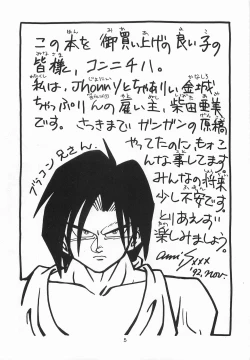 この本を御買い上げの良い子の
皆様，コンニチハ。
私は，Jhonnyとちゃありい金城
ちゃぷりんの雇い主，柴田亜美
です。さっきまでガンガンの原稿
やってたのに，もォこ
んな事してます。
みんなの将来
少し不安です。
とりあえず
楽しみましょう。
ami Sxxx
'92.nov.
ブラコン兄さん。
5